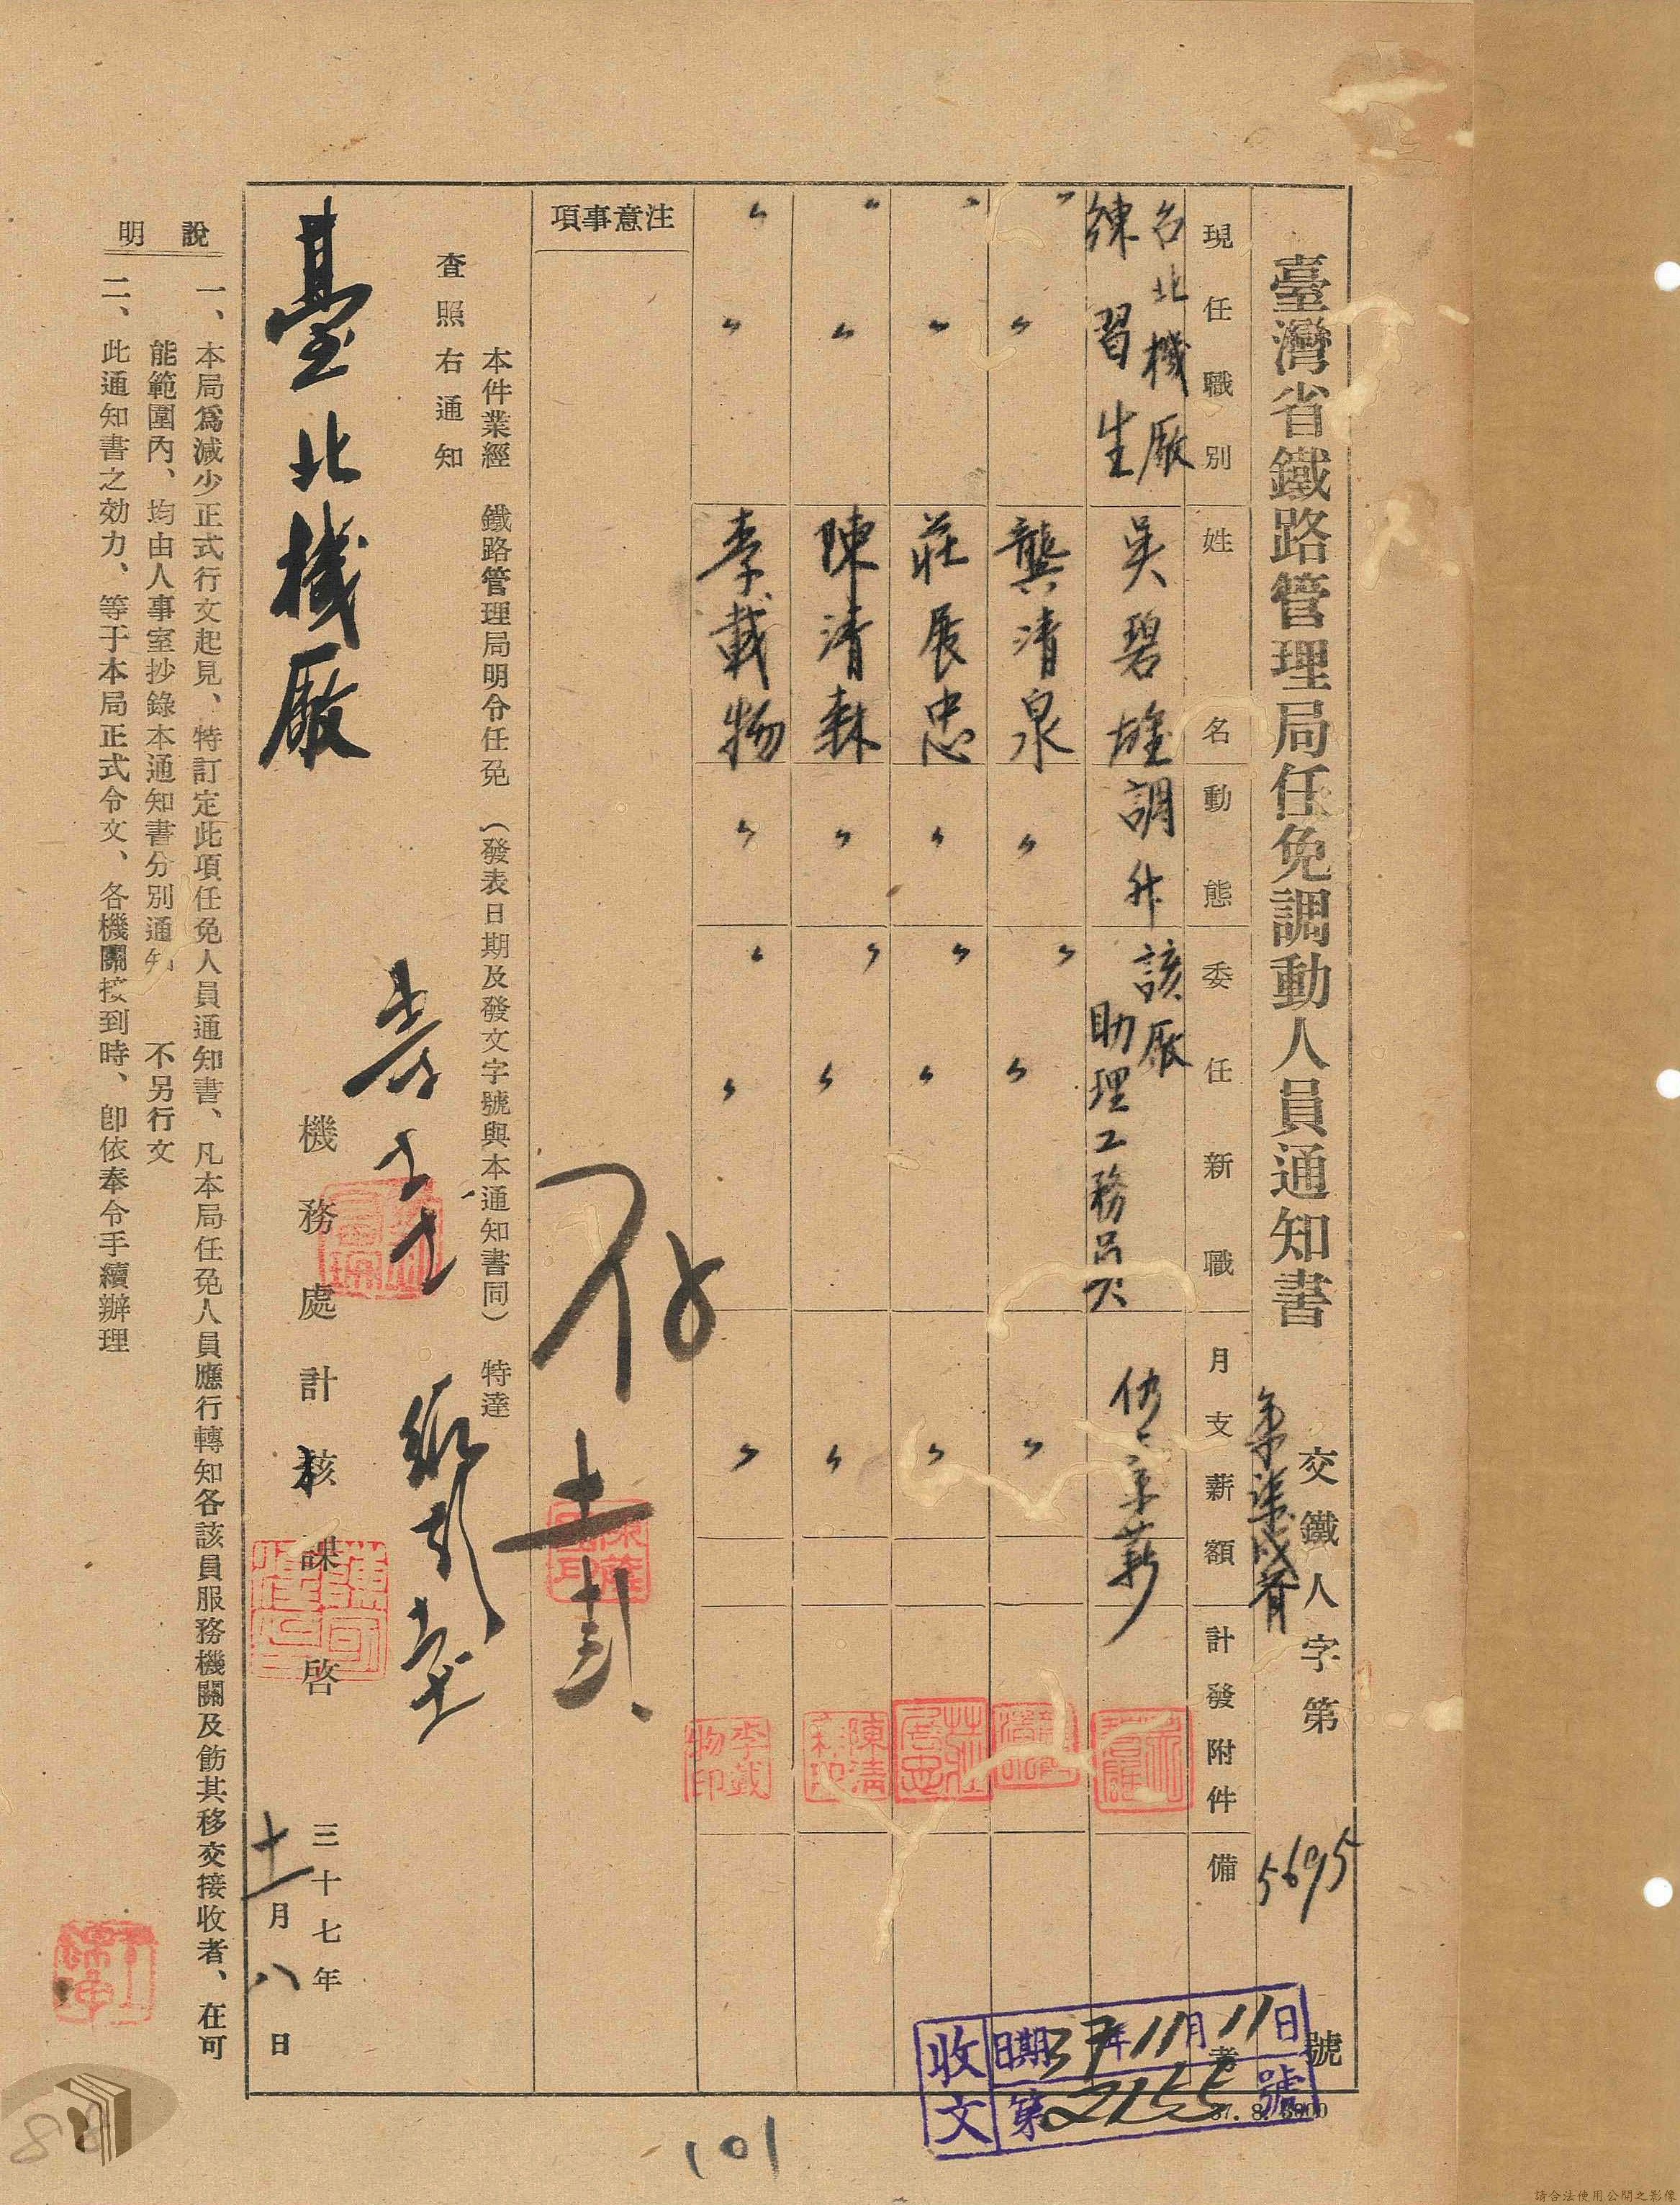 臺灣省鐵路管理局任免調動人員通知書
交鐵人字第5695號
現任職別 姓名 動態 委任新職 月支薪額 計發附件 備考
台北機廠練習生 吳碧雄 調升 該廠助理工務員 仍支原薪
〃 〃 龔清泉 〃 〃 〃 〃
〃 〃 莊展忠 〃 〃 〃 〃
〃 〃 陳清森 〃 〃 〃 〃
〃 〃 李載物 〃 〃 〃 〃
李載物印
陳清
注意事項
存
本件業經 鐵路管理局明令任免(發表日期及發文字號與本通知書同) 特達
查照右通知
臺北機廠
機務處計核課啓
三十七年
十一月八日
說明
一、本局爲減少正式行文起見、特訂定此項任免人員通知書、凡本局任免人員應行轉知各該員服務機關及飭其移交接收者、在可
能範圍內、均由人事室抄錄本通知書分別通知 不另行文
二、此通知書之効力、等于本局正式令文、各機關接到時、卽依奉令手續辦理
收文
日期37年11月11日
第2155號
37. 8. 5000
101
請合法使用公開之影像